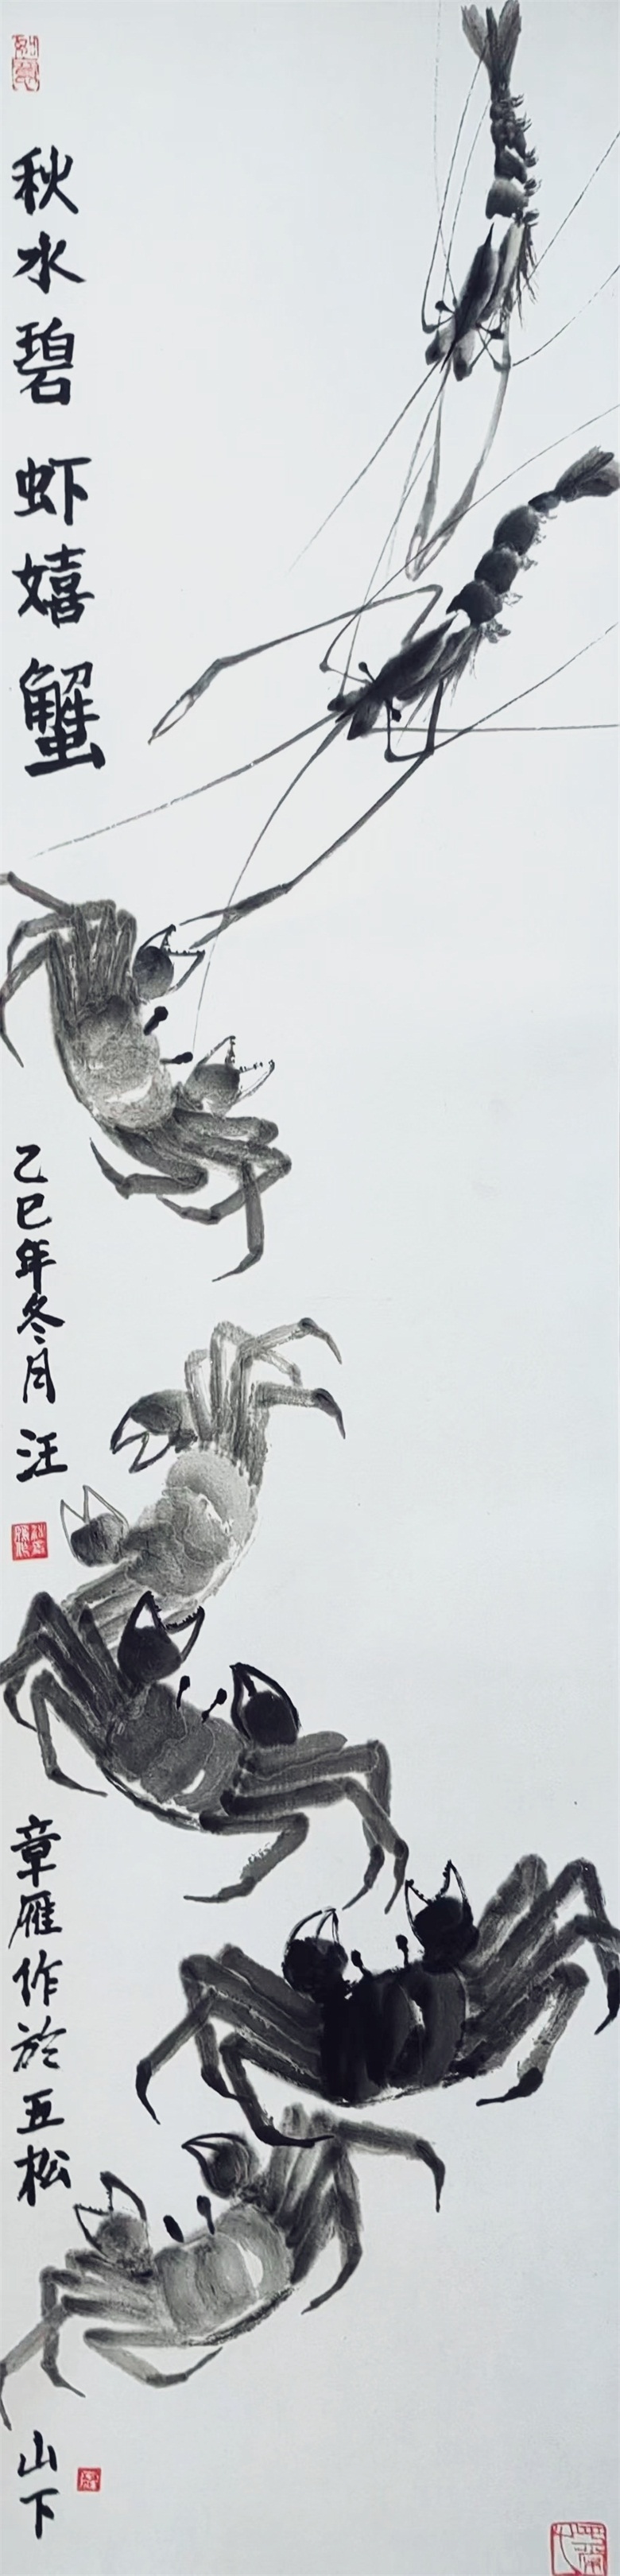 秋水碧 虾嬉蟹
乙巳年冬月 汪
章雁作於五松
山下